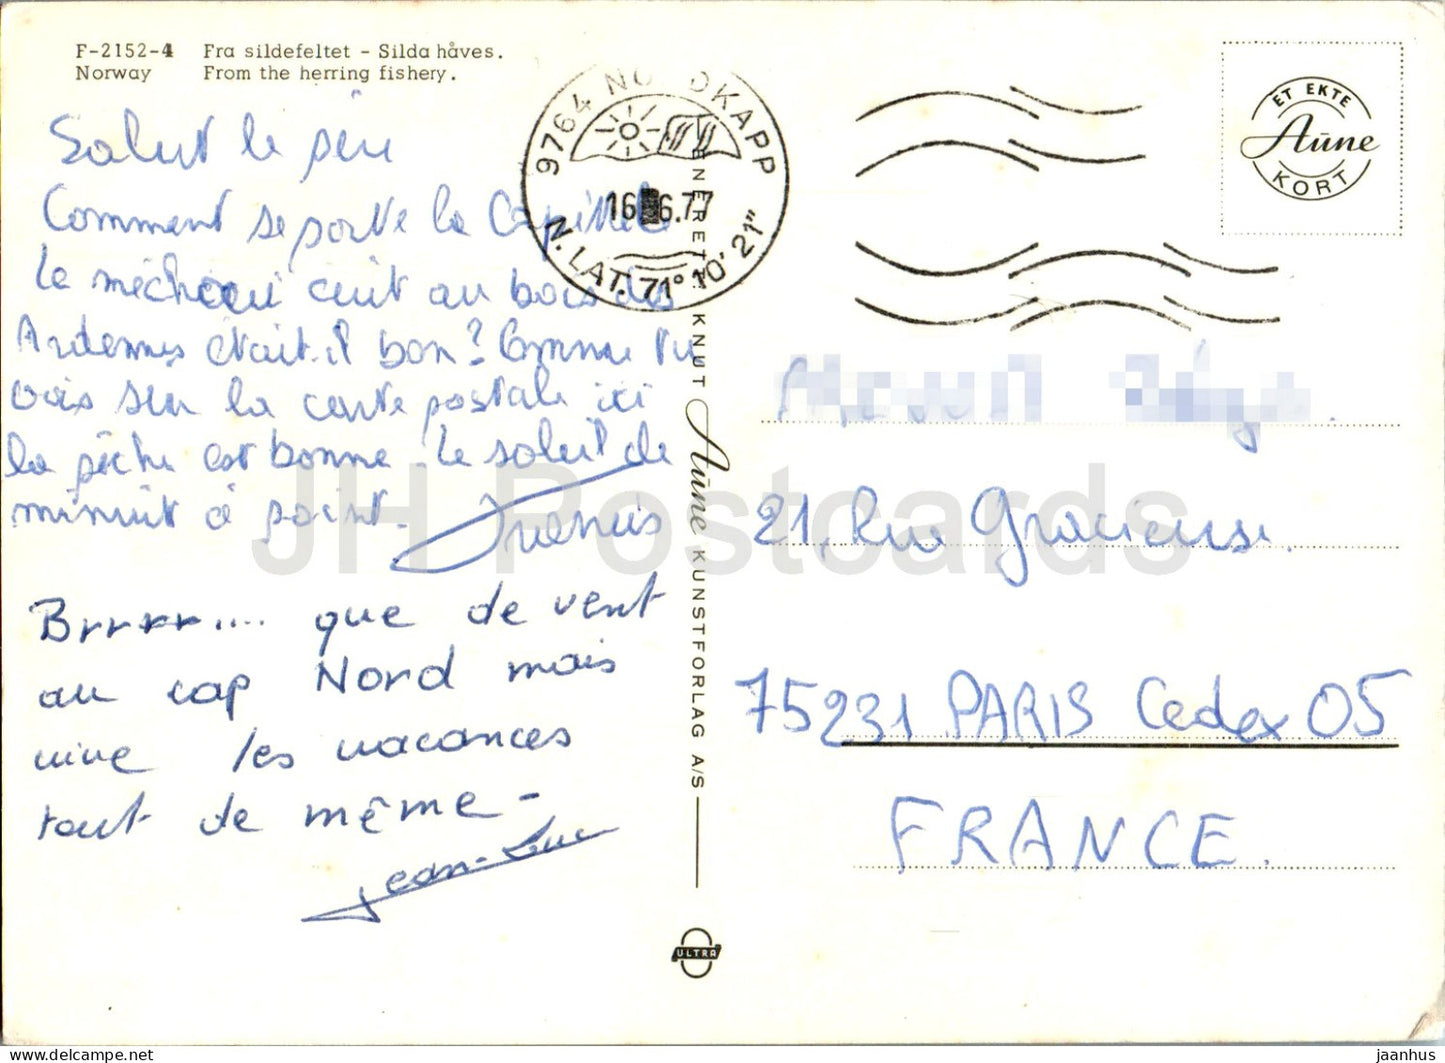 F-2152-4 Fra sildefeltet - Silda håves.
Norway From the herring fishery.
Salut le père
Comment se porte la Capitale
Le méchoui cuit au bois des
Ardennes était-il bon? Comme tu
vois sur la carte postale ici
la pêche est bonne. Le soleil de
minuit à point.
Brrrrr.... que de vent
au cap Nord mais
vive les vacances
tout de même -
Jean-Luc
9764 NORDKAPP
16 6.77
N. LAT. 71° 10' 21"
ENERETT: KNUT Aune KUNSTFORLAG A/S
ULTRA
ET EKTE
Aune
KORT
21, Rue Gracieuse.
75231 PARIS Cedex 05
FRANCE.
JH Postcards
delcampe.net
jaanhus